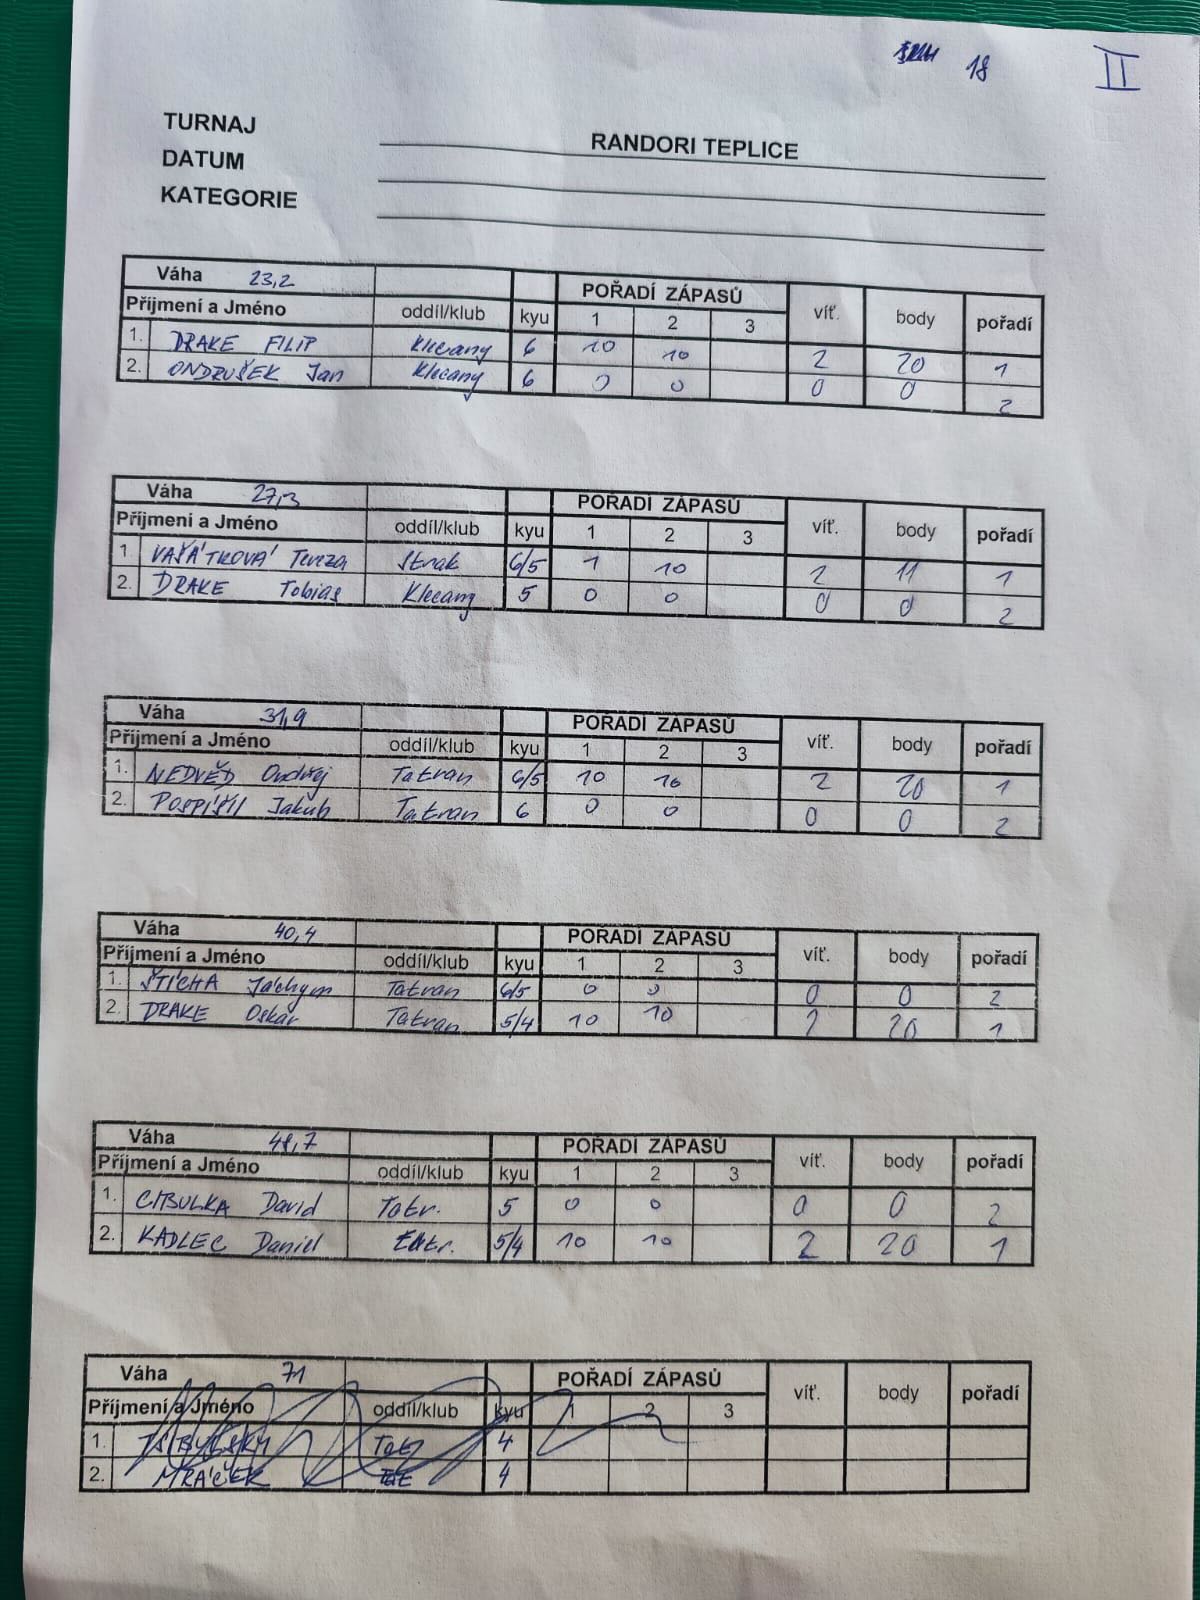 18 II
TURNAJ RANDORI TEPLICE
DATUM
KATEGORIE
Váha 23,2 POŘADÍ ZÁPASŮ
Příjmení a Jméno oddíl/klub kyu 1 2 3 víť. body pořadí
1. DRAKE FILIP Klecany 6 10 10 2 20 1
2. ONDRUŠEK Jan Klecany 6 0 0 0 0 2
Váha 27,3 POŘADÍ ZÁPASŮ
Příjmení a Jméno oddíl/klub kyu 1 2 3 víť. body pořadí
1. VAŠÁTKOVÁ Tereza Strak 6/5 1 10 2 11 1
2. DRAKE Tobias Klecany 5 0 0 0 0 2
Váha 31,9 POŘADÍ ZÁPASŮ
Příjmení a Jméno oddíl/klub kyu 1 2 3 víť. body pořadí
1. NEDVĚD Ondřej Tatran 6/5 10 10 2 20 1
2. POSPÍŠIL Jakub Tatran 6 0 0 0 0 2
Váha 40,4 POŘADÍ ZÁPASŮ
Příjmení a Jméno oddíl/klub kyu 1 2 3 víť. body pořadí
1. ŠTÍCHA Jáchym Tatran 6/5 0 0 0 0 2
2. DRAKE Oskar Tatran 5/4 10 10 2 20 1
Váha 48,7 POŘADÍ ZÁPASŮ
Příjmení a Jméno oddíl/klub kyu 1 2 3 víť. body pořadí
1. CIBULKA David Tatr. 5 0 0 0 0 2
2. KADLEC Daniel Tatr. 5/4 10 10 2 20 1
Váha 71 POŘADÍ ZÁPASŮ
Příjmení a Jméno oddíl/klub kyu 1 2 3 víť. body pořadí
1. Tatr 4
2. MRÁČEK 4